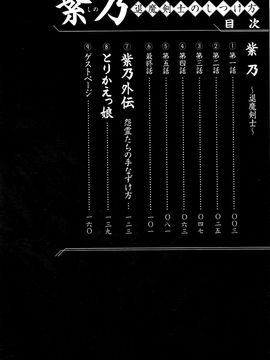 紫乃 退魔剣士のしつけ方
しの
目次
紫乃 ~退魔剣士~
① 第一話……〇〇三
② 第二話……〇二五
③ 第三話……〇四七
④ 第四話……〇六三
⑤ 第五話……〇八一
⑥ 最終話……一〇一
⑦ 紫乃外伝 怨霊たちの手なずけ方……一二三
⑧ とりかえっ娘……一三九
⑨ ゲストページ……一六〇